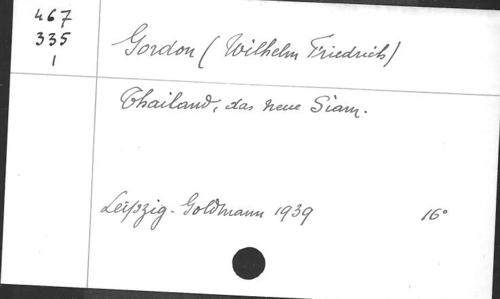 467
335
1
Gordon (Wilhelm Friedrich)
Thailand, das neue Siam.
Leipzig - Goldmann 1939 16°